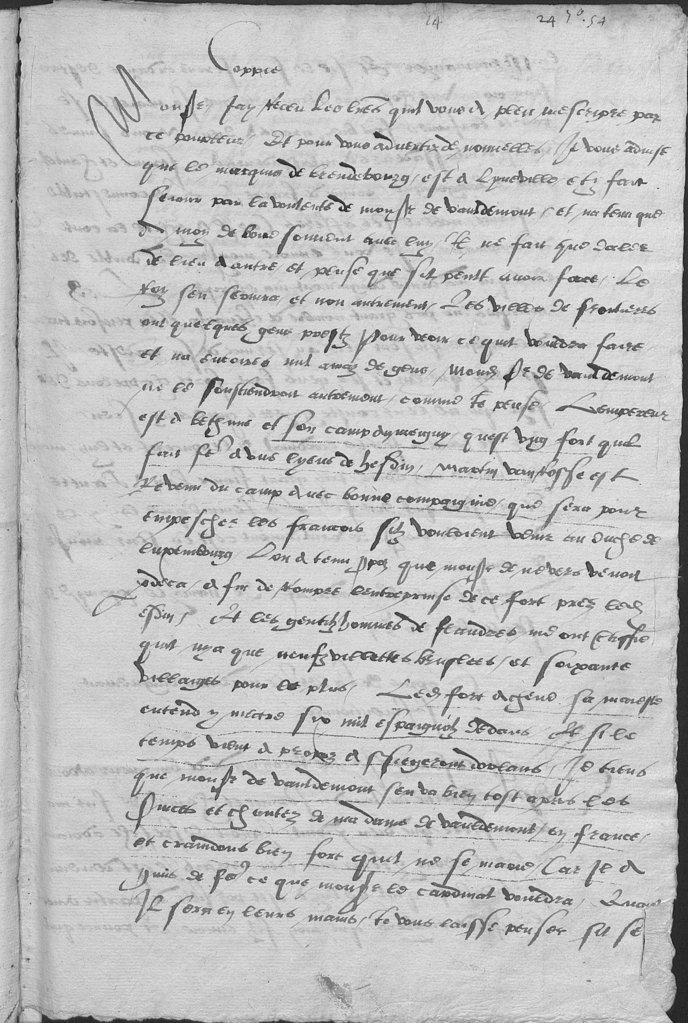 24 24 8bre 54
Coppie
Monsr Jay receu les lres quil vous a pleu mescripre par
ce pourteur Et pour vous advertir de nouvelles Je vous advise
que le marquis de brendebourg est a Lyneville et y fait
sejour par la voulente de monsr de vauldemont et na tenu que
moy de boire souvent avec luy Il ne fait que daller
de lieu a autre et pense que sil peult avoir force Le
roy sen servira et non autrement Les villes de frontieres
ont quelques gens prestz pour veoir ce quil vouldra faire
et na encoires nul amaz de gens Monsr de vauldemont
ne le soustiendroit autrement comme je pense Lempereur
est a bethune et son camp au mesnil quest ung fort quil
fait fe a deux lyeues de hesdin Martin van rosse est
revenu du camp avec bonne compaignie que sera pour
empescher les francois silz vouloient venir au duche de
luxembourg Lon a tenu propoz que monsr de nevers venoit
a fin de rompre lentreprinse de ce fort prez led
esdin Et les gentilzhommes de flandres me ont
quil nya que neufz villettes bruslees et soixante
villaiges pour le plus Led fort acheve sa maieste
entend y mectre six mil espaignolz dedans Et si le
temps vient a propoz assiegeront dorlans Je tiens
que monsr de vauldemont sen va bien tost apres les
nopces de madame de vauldemont en france
et craindons bien fort quil ne se marie Car il a
promis de fe ce que monsr le cardinal vouldra Quant
Il sera en leurs mains je vous laisse penser sil se